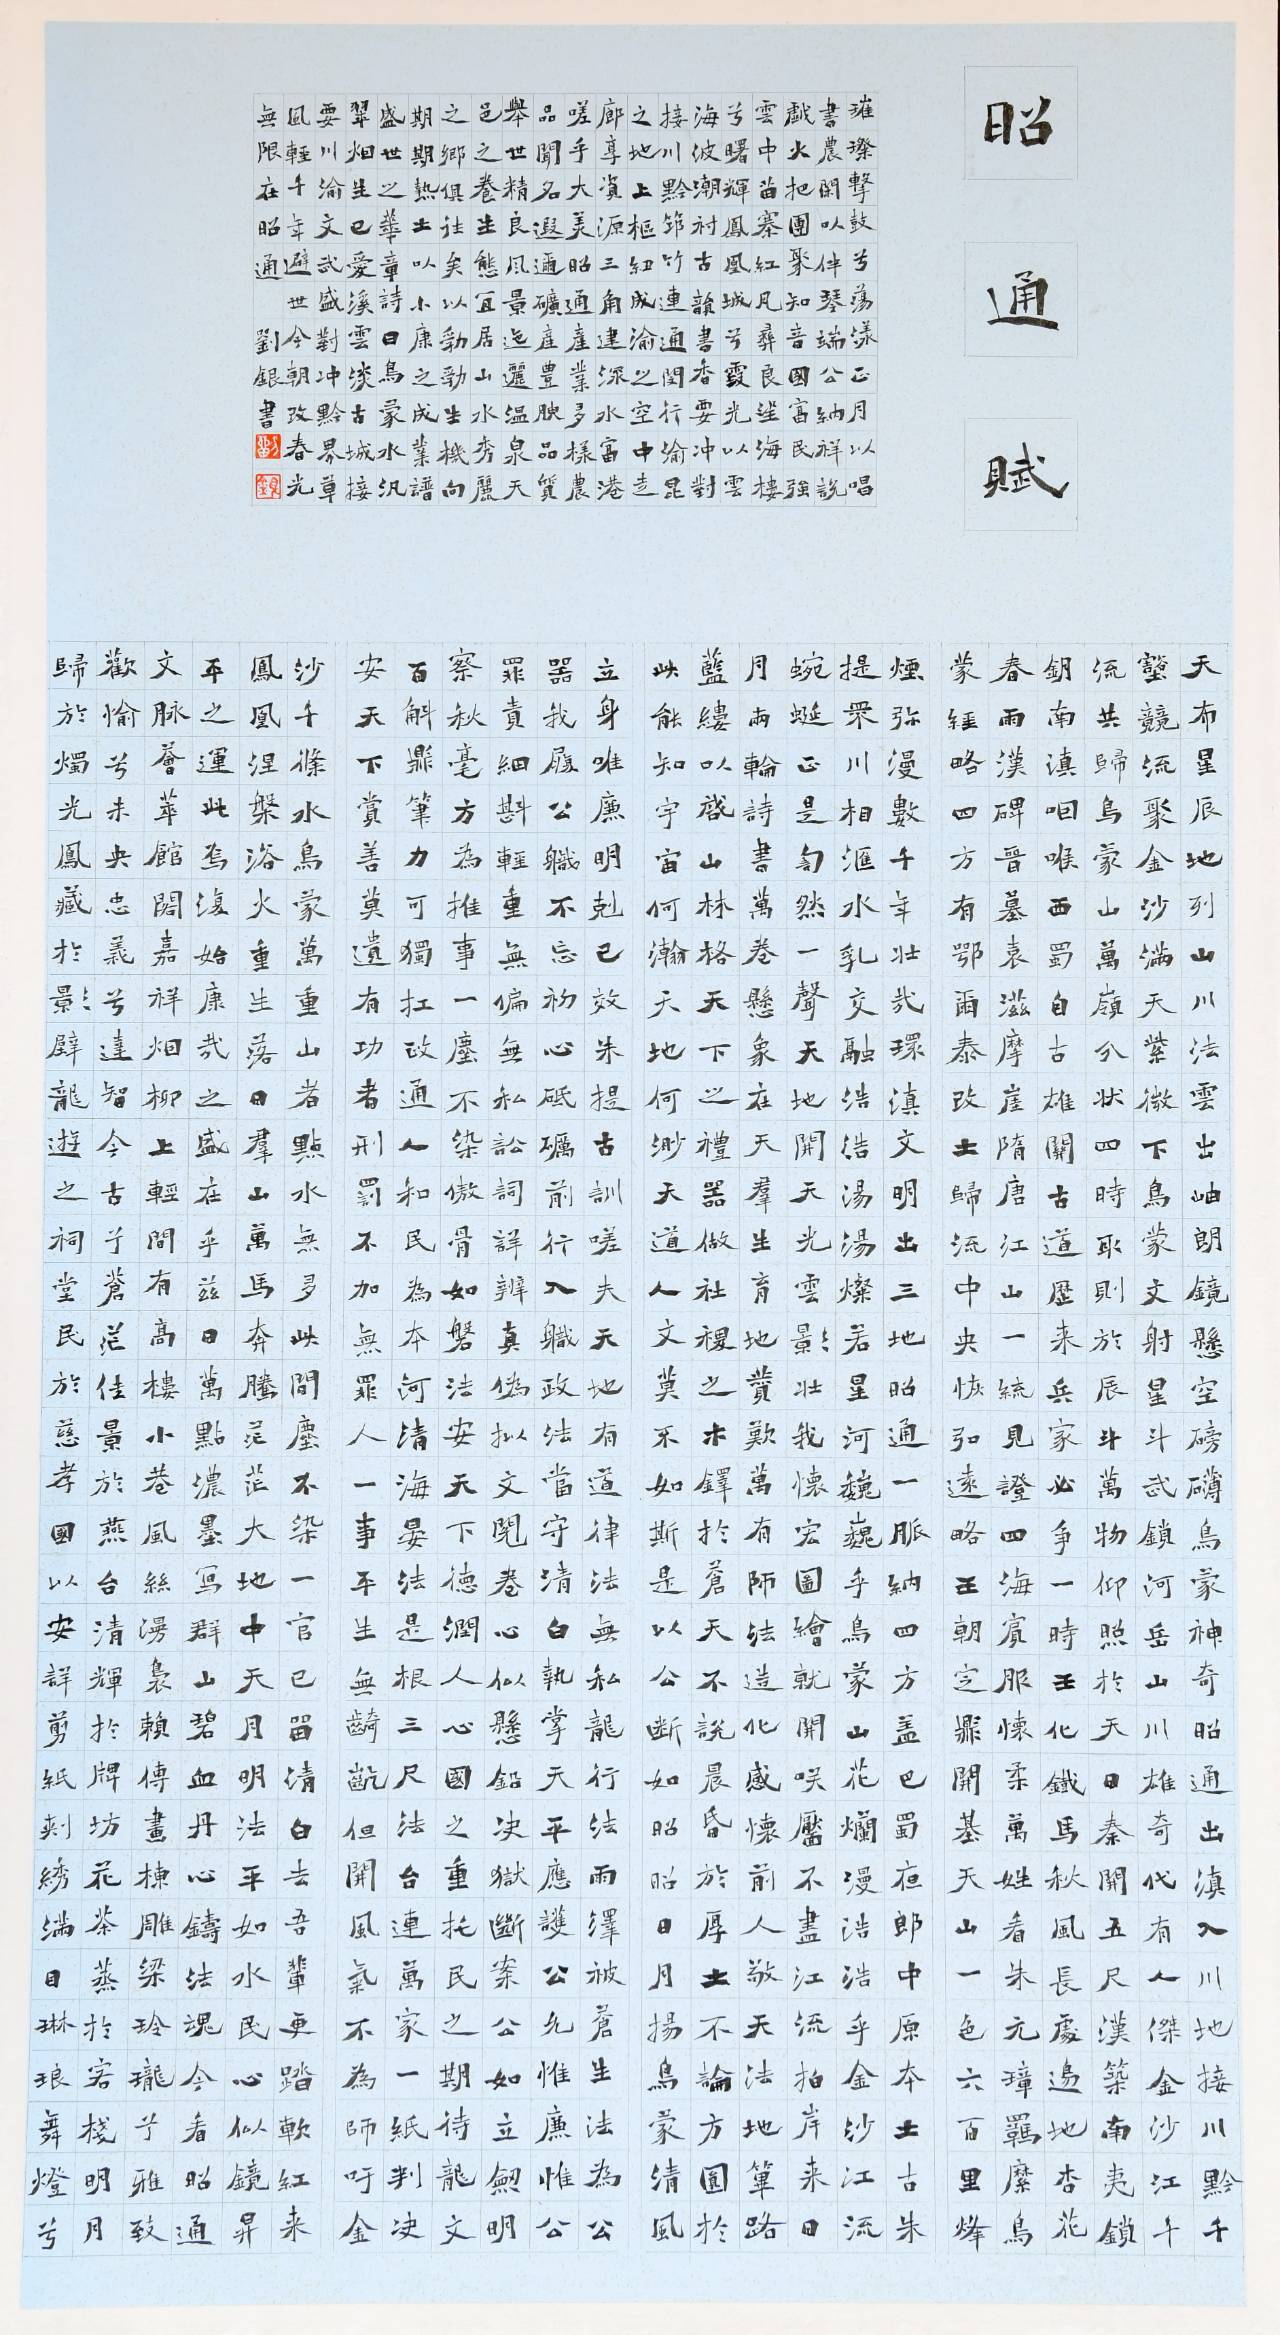 昭通賦
天布星辰地列山川法雲出岫朗鏡懸空磅礴烏蒙神奇昭通出滇入川地接川黔千
壑競流聚金沙滿天紫微下烏蒙文射星斗武鎖河岳山川雄奇代有人傑金沙江千
流共歸烏蒙山萬嶺分狀四時取則於辰斗萬物仰照於天日秦開五尺漢築南夷鎖
鈅南滇咽喉西蜀自古雄關古道歷来兵家必争一時王化鐵馬秋風長處邊地杏花
春雨漢碑晉墓袁滋摩崖隋唐江山一統見證四海賓服懷柔萬姓看朱元璋羈縻烏
蒙經略四方有鄂爾泰改土歸流中央恢弘遠略王朝定鼎開基天山一色六百里烽
煙弥漫數千年壮哉環滇文明出三地昭通一脈納四方盖巴蜀夜郎中原本土古朱
提眾川相滙水乳交融浩浩湯湯燦若星河巍巍乎烏蒙山花爛漫浩浩乎金沙江流
蜿蜒正是訇然一聲天地開天光雲影壮我懷宏圖繪就開咲靨不盡江流拍岸来日
月兩輪詩書萬卷懸象在天羣生育地贊歎萬有師法造化感懷前人敬天法地篳路
藍縷以啟山林格天下之禮器做社稷之木鐸於蒼天不說晨昏於厚土不論方圓於
此能知宇宙何瀚天地何渺天道人文莫不如斯是以公斷如昭昭日月揚烏蒙清風
立身唯廉明剋已效朱提古訓嗟夫天地有道律法無私龍行法雨澤被蒼生法為公
器我履公職不忘初心砥礪前行入職政法當守清白執掌天平應護公允惟廉惟公
罪責細斟輕重無偏無私訟詞詳辨真偽擬文閱卷心似懸鉛决獄斷案公如立劍明
察秋毫方為推事一塵不染傲骨如磐法安天下德潤人心國之重托民之期待龍文
百斛鼎筆力可獨扛政通人和民為本河清海晏法是根三尺法台連萬家一紙判决
安天下賞善莫遺有功者刑罰不加無罪人一事平生無齮齕但開風氣不為師吁金
沙千條水烏蒙萬重山者點水無多此間塵不染一官已留清白去吾輩更踏軟紅来
鳳凰涅槃浴火重生落日羣山萬馬奔騰茫茫大地中天月明法平如水民心似鏡昇
平之運此焉復始康哉之盛在乎兹日萬點濃墨寫群山碧血丹心鑄法魂今看昭通
文脈薈萃館閣嘉祥烟柳上輕間有高樓小巷風絲湧裊賴傳畫棟雕梁玲瓏兮雅致
歡愉兮未央忠義兮達智今古兮蒼茫佳景於燕台清輝於牌坊花茶蒸於客棧明月
歸於燭光鳳藏於影壁龍遊之祠堂民於慈孝國以安詳剪紙刺綉滿目琳琅舞燈兮
璀璨擊鼓兮蕩漾正月以唱
書農閑以伴琴端公納祥說
戲火把團聚知音國富民強
雲中苗寨紅凡彝良望海樓
兮曙輝鳳凰城兮霞光以雲
海波潮衬古韻書香要冲對
接川黔筇竹連通閏行渝昆
之地上樞紐成渝之空中走
廊享資源三角建深水富港
嗟乎大美昭通產業多樣農
品聞名遐邇礦產豐腴品質
舉世精良風景迤邐温泉天
邑之養生態宜居山水秀麗
之鄉俱往矣以勃勃生機向
期期熱土以小康之成業譜
盛世之華章詩曰烏蒙水汎
翠烟生已爱溪雲淡古城接
要川渝文武盛對冲黔界草
風輕千年避世今朝改春光
無限在昭通 劉銀書
劉
銀